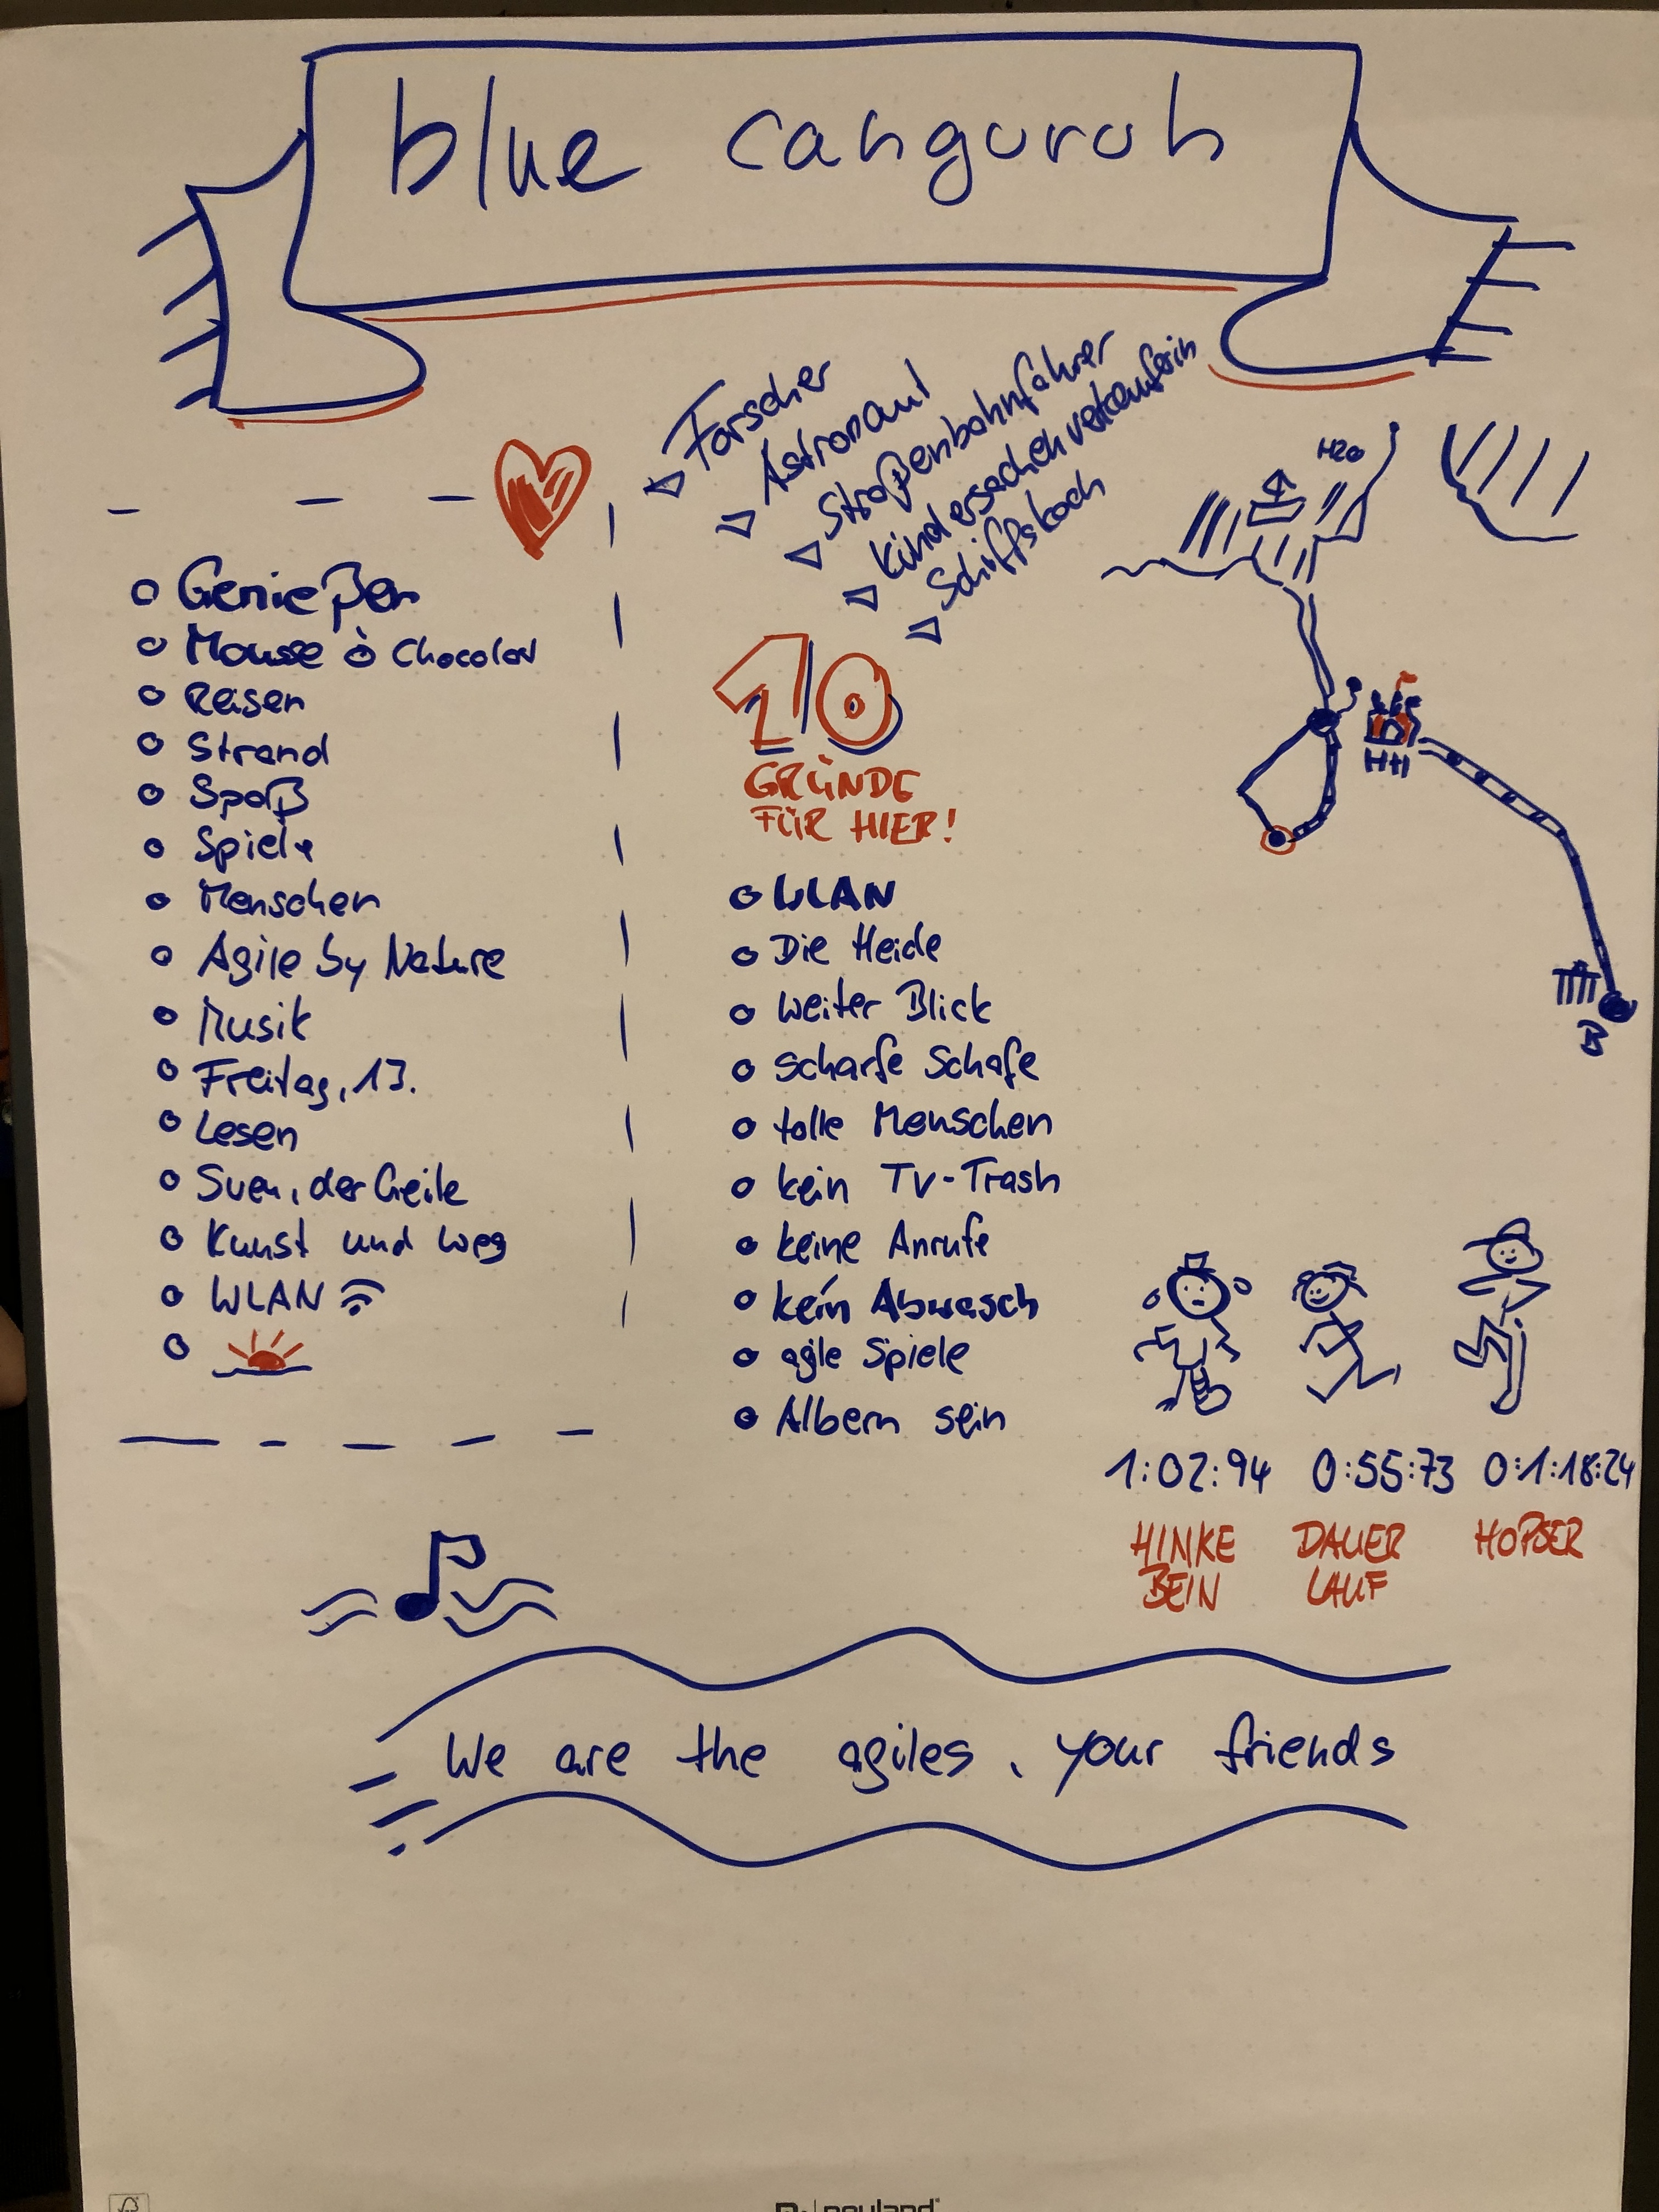 blue canguruh
Forscher
Astronaut
Straßenbahnfahrer
Kindersachenverkäuferin
Schiffskoch
H2O
Genießen
Mousse à Chocolat
Reisen
Strand
Spaß
Spiele
Menschen
Agile by Nature
Musik
Freitag, 13.
Lesen
Sven, der Geile
Kunst und weg
WLAN
10
GRÜNDE
FÜR HIER!
WLAN
Die Heide
weiter Blick
scharfe Schafe
tolle Menschen
kein TV-Trash
keine Anrufe
kein Abwasch
agile Spiele
Albern sein
HH
B
1:02:94 0:55:73 0:1:18:24
HINKE DAUER HOPSER
BEIN LAUF
We are the agiles, your friends
neuland